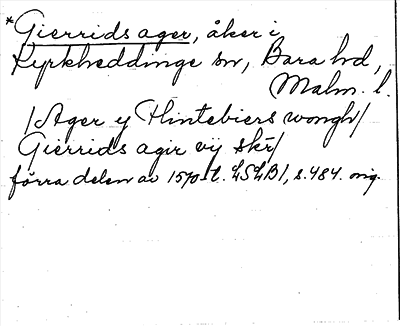 *Gierrids ager, åker i
Kyrkheddinge sn, Bara hd,
Malm. l.
/Ager y Hintebiers wongh/
Gierrids agir vij skr/
förra delen av 1570-t. LSLB1, s. 484. orig.